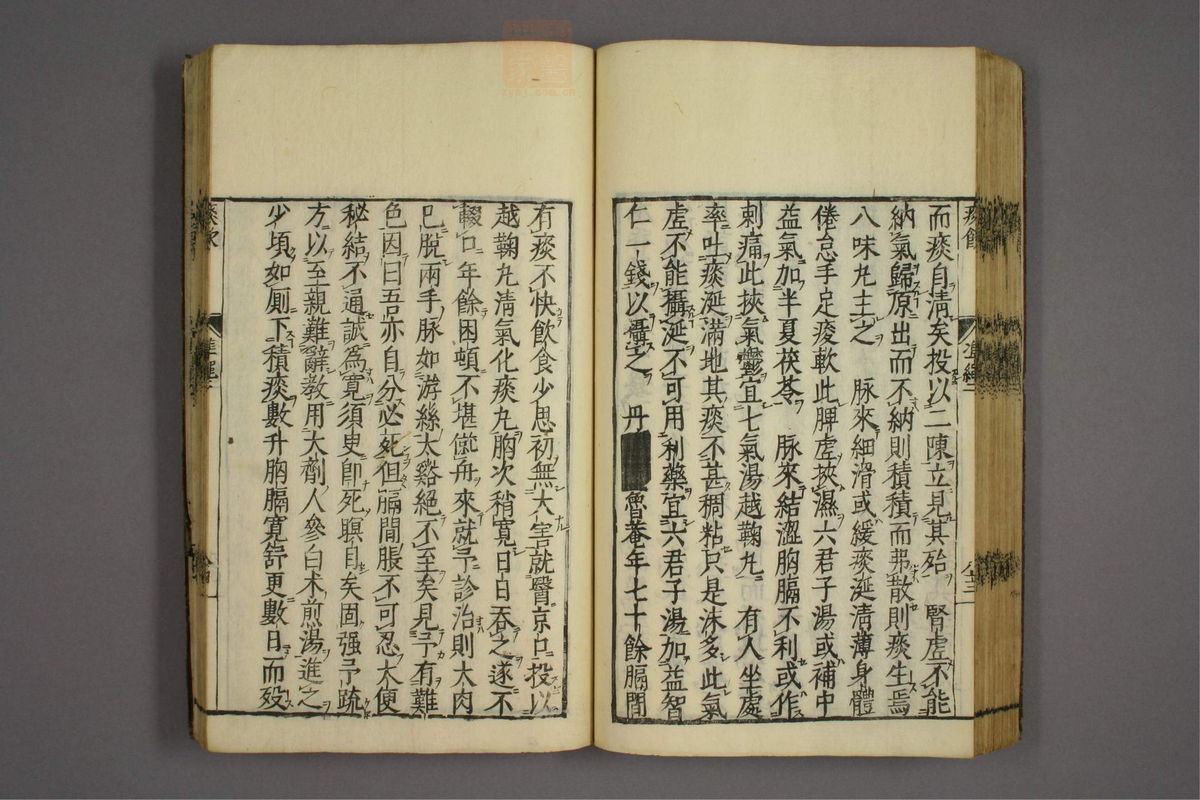 而痰自清矣投以二陳立見其殆　腎虛不能
納氣歸原出而不納則積積而弗散則痰生焉
八味丸主之　脉來細滑或緩痰涎清薄身體
倦怠手足痠軟此脾虛挾濕六君子湯或補中
益氣加半夏茯苓　脉來結澀胸膈不利或作
刺痛此挾氣鬱宜七氣湯越鞠丸　有人坐處
率吐痰涎滿地其痰不甚稠粘只是沫多此氣
虛不能攝涎不可用利藥宜六君子湯加益智
仁一錢以攝之　丹
魯菴年七十餘膈間
有痰不快飲食少思初無大害就醫京口投以
越鞠丸清氣化痰丸胸次稍寬日日吞之遂不
輟口年餘困頓不堪僦舟來就予診治則大肉
已脫兩手脉如游絲太谿絕不至矣見予有難
色因曰吾亦自分必死但膈間脹不可忍大便
秘結不通誠爲寬須臾卽死瞑目矣固强予疏
方以至親難辭教用大劑人參白朮煎湯進之
少頃如厠下積痰數升胸膈寬舒更數日而歿
痰飲